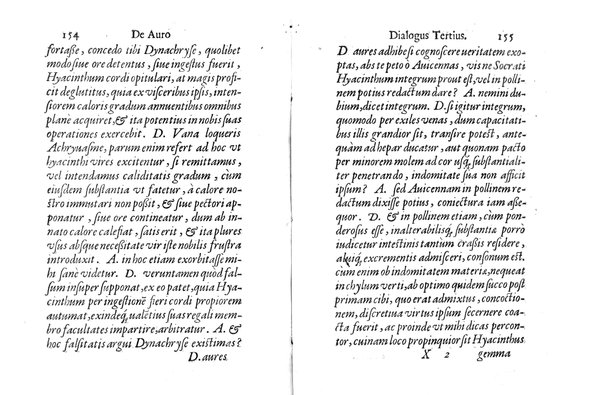 154 De Auro
fortaße, concedo tibi Dynachryse, quolibet
modo siue ore detentus, siue ingestus fuerit,
Hyacinthum cordi opitulari, at magis profi
cit deglutitus, quia ex visceribus ipsis, inten-
siorem caloris gradum annuentibus omnibus
planè acquiret, & ita potentius in nobis suas
operationes exercebit. D. Vana loqueris
Achryuasne, parum enim refert ad hoc vt
hyacinthi vires excitentur, si remittamus,
vel intendamus caliditatis gradum, cùm
eiusdem substantia vt fatetur, à calore no-
stro immutari non poßit, & siue pectori ap-
ponatur, siue ore contineatur, dum ab in-
nato calore calefiat, satis erit, & ita plures
vsus absque neceßitate vir iste nobilis frustra
introduxit. A. in hoc etiam exorbitasse mi-
hi sanè videtur. D. veruntamen quòd fal-
sum insuper supponat, ex eo patet, quia Hya-
cinthum per ingestionè fieri cordi propiorem
autumat, exindeq́; ualentius suas regali mem-
bro facultates impartire, arbitratur. A. &
hoc falsitatis argui Dynachryse existimas?
D. aures
Dialogus Tertius. 155
D aures adhibe si cognoscere ueritatem exo-
ptas, abs te peto ò Auicennas, vis ne Socrati
Hyacinthum integrum prout est, vel in pollinem
potius redactum dare? A. nemini du-
bium, dicet integrum. D. si igitur integrum,
quomodo per exiles venas, dum capacitati-
bus illis grandior sit, transire potest, ante-
quàm ad hepar ducatur, aut quonam pacto
per minorem molem ad cor usq́; substantiali-
ter penetrando, indomitate sua non afficit
ipsum? A. sed Auicennam in pollinem re-
dactum dixisse potius, coniectura iam asse-
quor. D. & in pollinem etiam, cùm pon-
derosus esse, inalterabilisq́; substantiæ porrò
iudicetur intestinis tantùm craßis residere,
excrementis admisceri, consonum est.
cùm enim ob indomitatem materiæ, nequeat
in chylum verti, ab optimo quidem succo post
primam cibi, quo erat admixtus, concoctio-
nem, discretiua virtus ipsum secernere coa-
cta fuerit, ac proinde vt mihi dicas percon-
tor, cuinam loco propinquior sit Hyacinthus
X 2 gemma